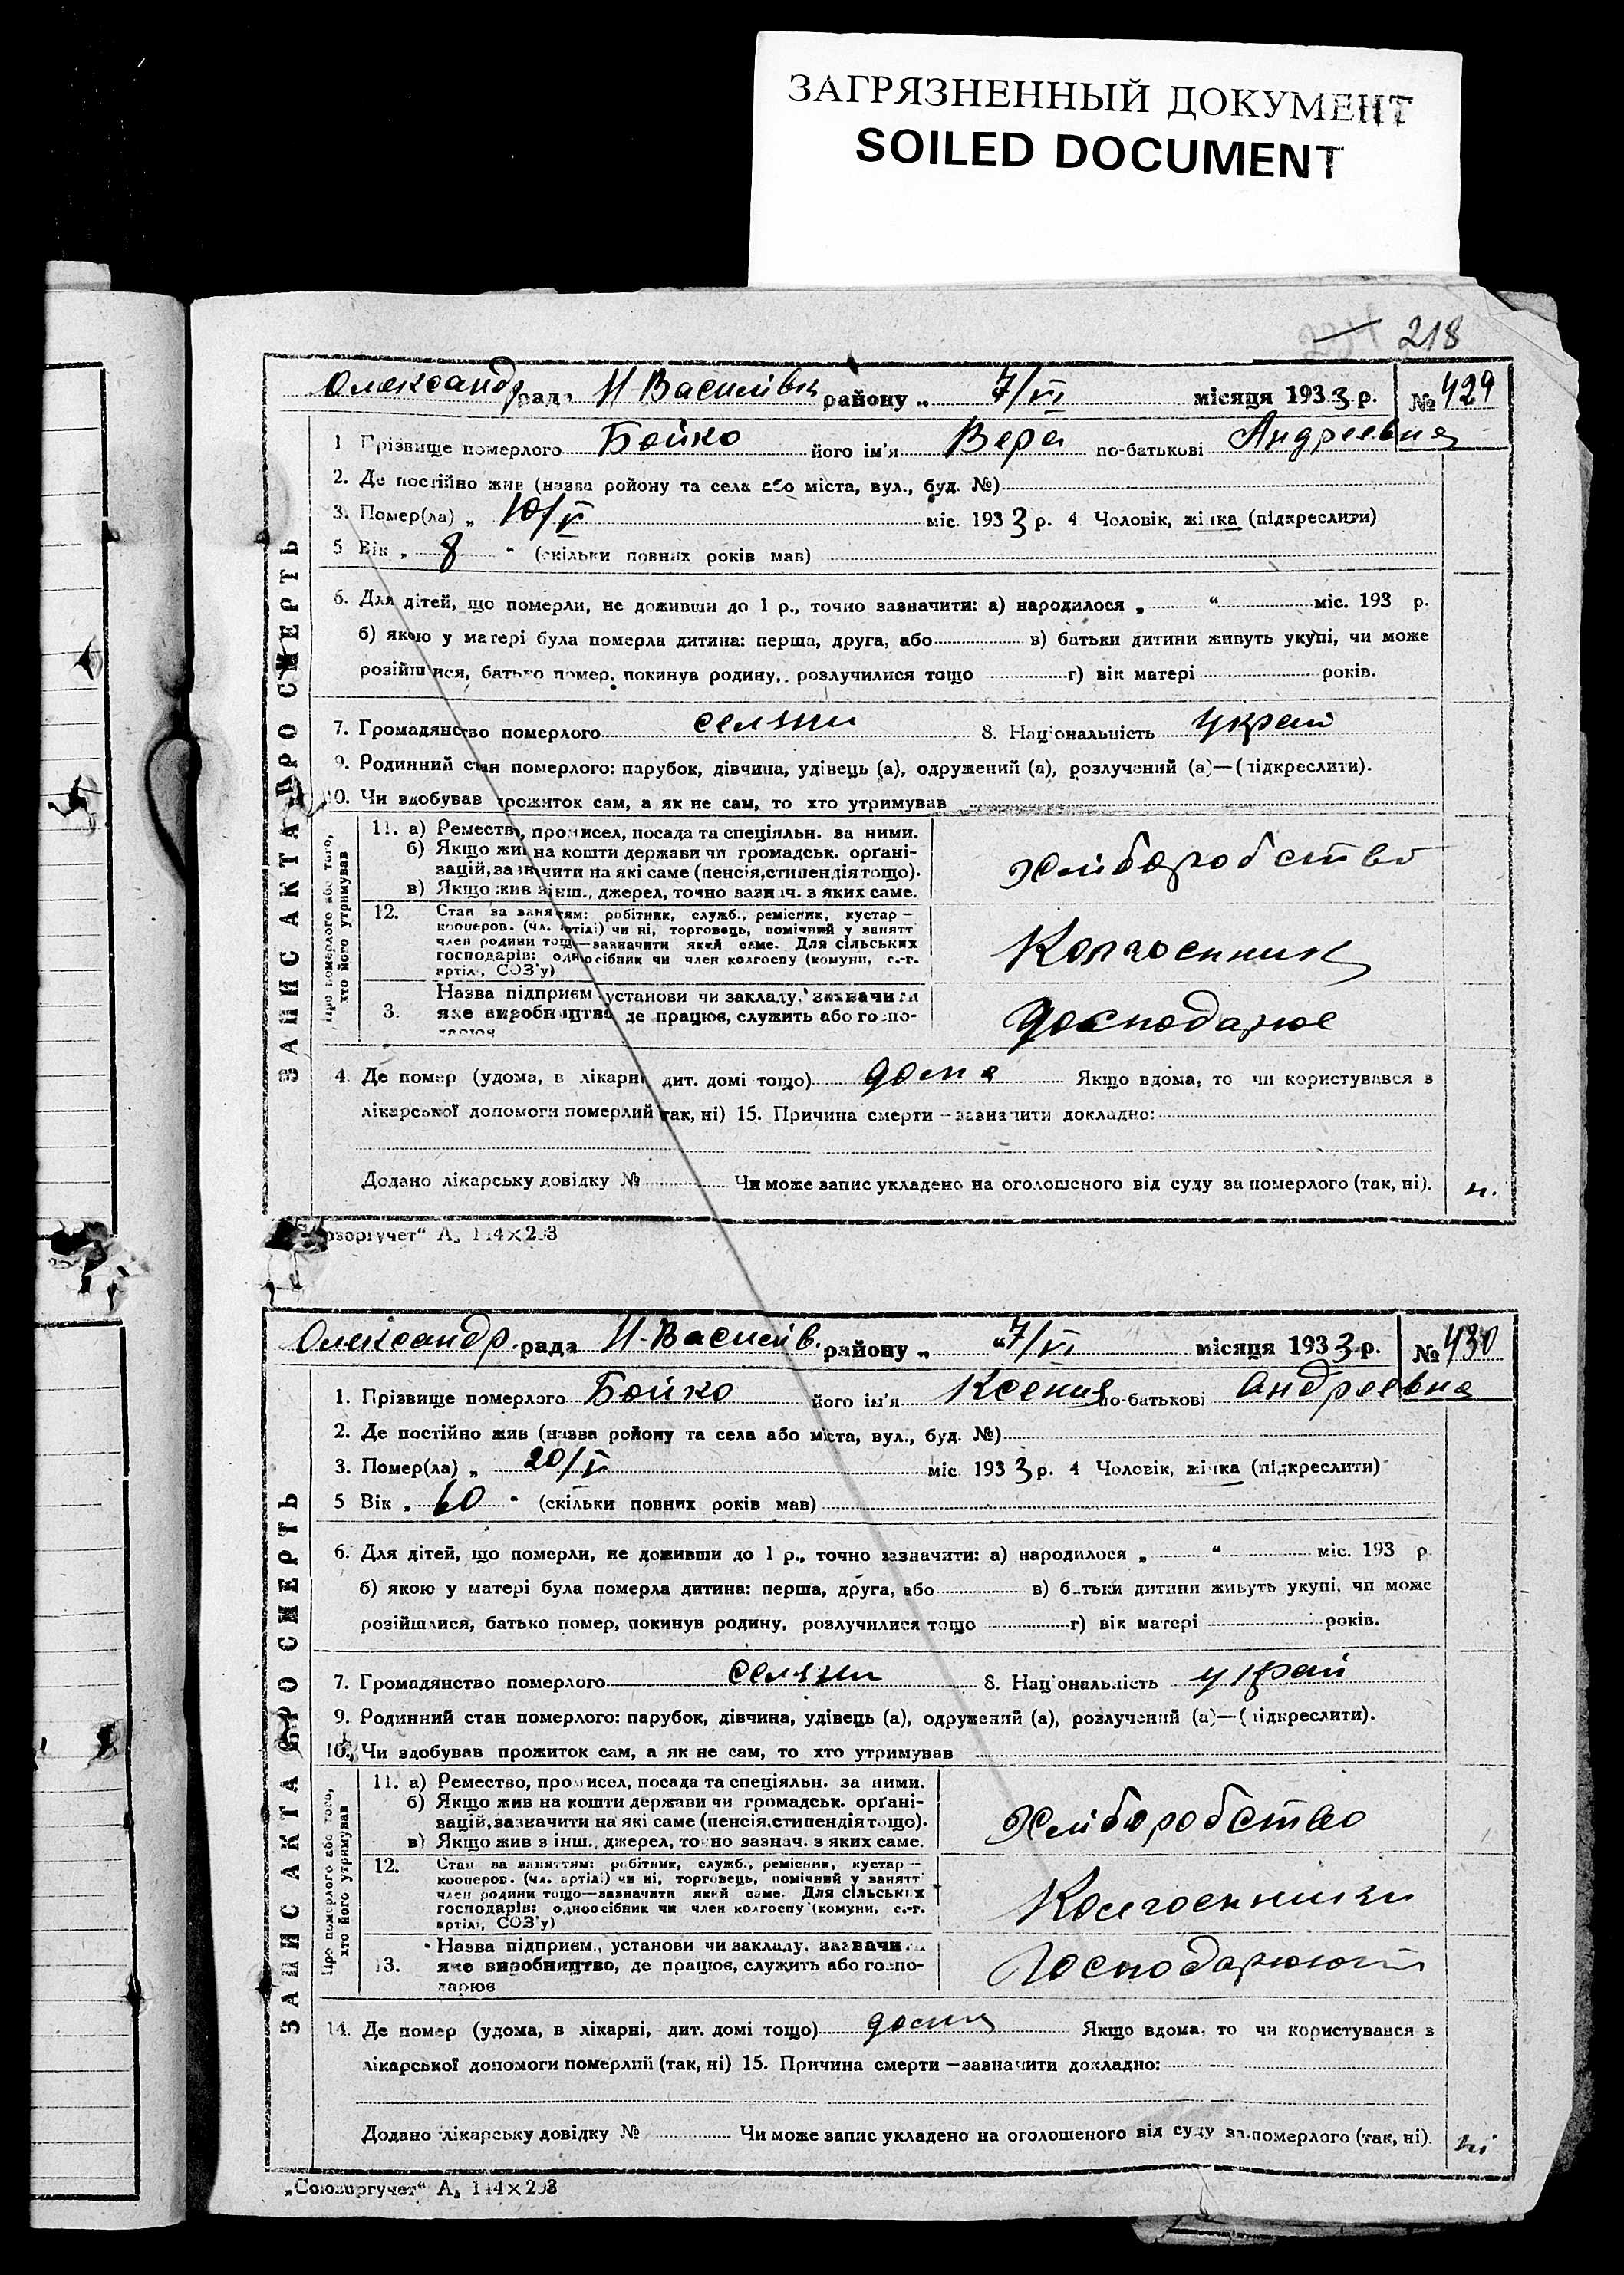 ЗАГРЯЗНЕННЫЙ ДОКУМЕНТ
SOILED DOCUMENT
218
Олександр. рада Н Василівк району „ 7/VI місяця 1933 р. № 429
ЗАПИС АКТА ПРО СМЕРТЬ
1 Прізвище померлого Бойко його ім'я Вера по-батькові Андреевна
2. Де постійно жив (назва ройону та села або міста, вул., буд. №)
3. Помер(ла) „ 10/V міс. 1933 р. 4 Чоловік, жінка (підкреслити)
5 Вік „ 8 “ (скільки повних років мав)
6. Для дітей, що померли, не доживши до 1 р., точно зазначити: а) народилося „ “ міс. 193 р.
б) якою у матері була померла дитина: перша, друга, або в) батьки дитини живуть укупі, чи може
розійшлися, батько помер, покинув родину, розлучилися тощо г) вік матері років.
7. Громадянство померлого селянин 8. Національність Украй
9. Родинний стан померлого: парубок, дівчина, удівець (а), одружений (а), розлучений (а)—(підкреслити).
10. Чи здобував прожиток сам, а як не сам, то хто утримував
Про померлого або того,
хто його утримував
11. а) Ремество, промисел, посада та спеціяльн. за ними.
б) Якщо жив на кошти держави чи громадськ. орґані-
зацій, зазначити на які саме (пенсія, стипендія тощо).
в) Якщо жив з інш., джерел, точно зазнач. з яких саме.
Хліборобство
12. Стан за заняттям: робітник, служб., ремісник, кустар —
кооперов. (чл. артілі) чи ні, торговець, помічний у занятт
член родини тощо—зазначити який саме. Для сільських
господарів: одноосібник чи член колгоспу (комуни, с.-г.
артілі, СОЗ'у)
Колгоспник
3. Назва підприєм установи чи закладу, зазначити
яке виробництво де працює, служить або госпо-
дарює
Господарює
4. Де помер (удома, в лікарні, дит. домі тощо) дома Якщо вдома, то чи користувався з
лікарської допомоги померлий (так, ні) 15. Причина смерти — зазначити докладно:
Додано лікарську довідку № Чи може запис укладено на оголошеного від суду за померлого (так, ні). н.
А₅ 144×203
Олександр. рада Н-Василів. району „ 7/VI місяця 1933 р. № 430
ЗАПИС АКТА ПРО СМЕРТЬ
1. Прізвище померлого Бойко його ім'я Ксения по-батькові Андреевна
2. Де постійно жив (назва ройону та села або міста, вул., буд. №)
3. Помер(ла) „ 20/V міс. 1933 р. 4 Чоловік, жінка (підкреслити)
5 Вік „ 60 “ (скільки повних років мав)
6. Для дітей, що померли, не доживши до 1 р., точно зазначити: а) народилося „ “ міс. 193 р.
б) якою у матері була померла дитина: перша, друга, або в) батьки дитини живуть укупі, чи може
розійшлися, батько помер, покинув родину, розлучилися тощо г) вік матері років.
7. Громадянство померлого селянин 8. Національність украй
9. Родинний стан померлого: парубок, дівчина, удівець (а), одружений (а), розлучений (а)—(підкреслити).
10. Чи здобував прожиток сам, а як не сам, то хто утримував
Про померлого або того,
хто його утримував
11. а) Ремество, промисел, посада та спеціяльн. за ними.
б) Якщо жив на кошти держави чи громадськ. орґані-
зацій, зазначити на які саме (пенсія, стипендія тощо).
в) Якщо жив з інш., джерел, точно зазнач. з яких саме.
Хліборобство
12. Стан за заняттям: робітник, служб., ремісник, кустар —
кооперов. (чл. артілі) чи ні, торговець, помічний у занятт
член родини тощо—зазначити який саме. Для сільських
господарів: одноосібник чи член колгоспу (комуни, с.-г.
артілі, СОЗ'у)
Колгоспники
13. Назва підприєм., установи чи закладу, зазначити
яке виробництво, де працює, служить або госпо-
дарює
Господарюють
14. Де помер (удома, в лікарні, дит. домі тощо) дома Якщо вдома, то чи користувався з
лікарської допомоги померлий (так, ні) 15. Причина смерти — зазначити докладно:
Додано лікарську довідку № Чи може запис укладено на оголошеного від суду за померлого (так, ні). ні
„Союзоргучет“ А₅ 144×203